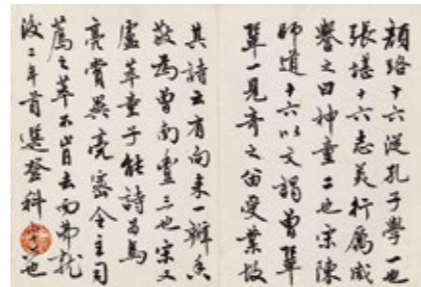 顏路十六從孔子學一也
張堪十六志美行厲咸
譽之曰神童二也宋陳
師道十六以文謁曾鞏
鞏一見奇之留受業故
其詩云有向來一瓣香
敬為曾南豐三也宋又
盧萃童子能詩為馬
亮賞異亮密令主司
薦之萃不肯去而弗就
後二年首選登科也